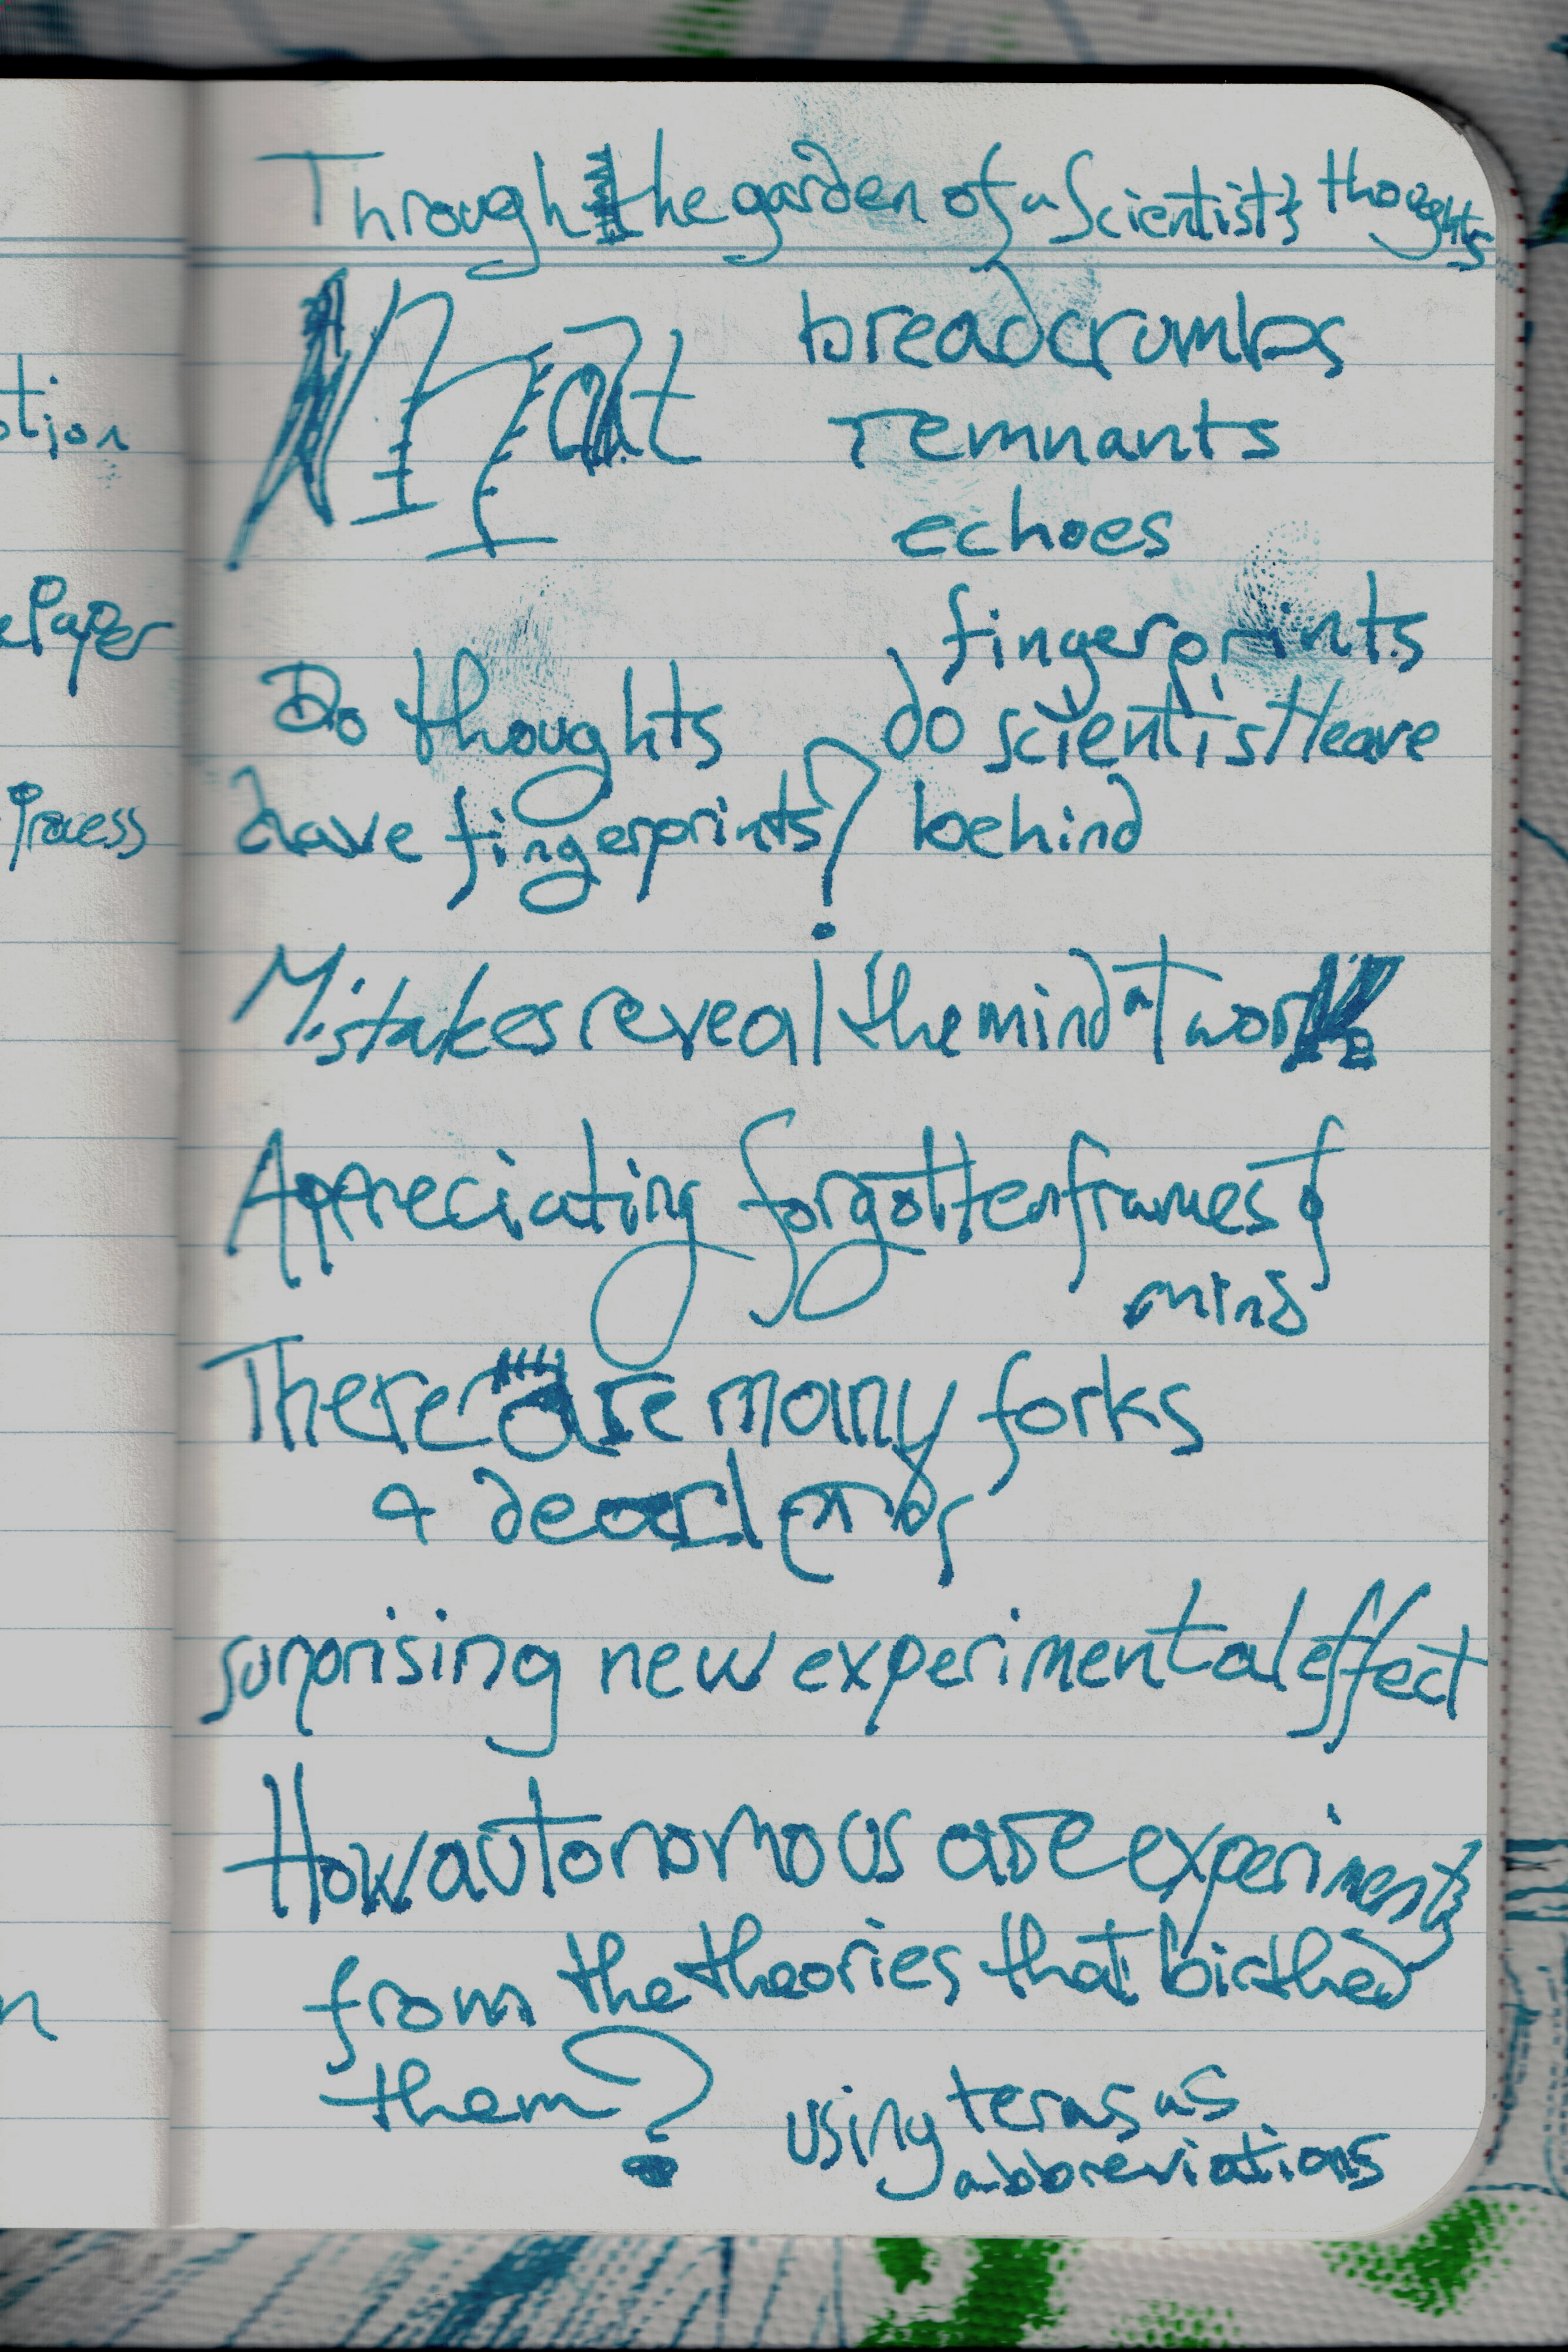 Through the garden of a Scientist's thoughts
What
breadcrumbs
remnants
echoes
fingerprints
do scientist leave
behind
Do thoughts
have fingerprints?
Mistakes reveal the mind at work
Appreciating forgotten frames of
mind
There are many forks
& dead ends
surprising new experimental effect
How autonomous are experiments
from the theories that birthed
them?
using terms as
abbreviations
otion
ePaper
Process
n